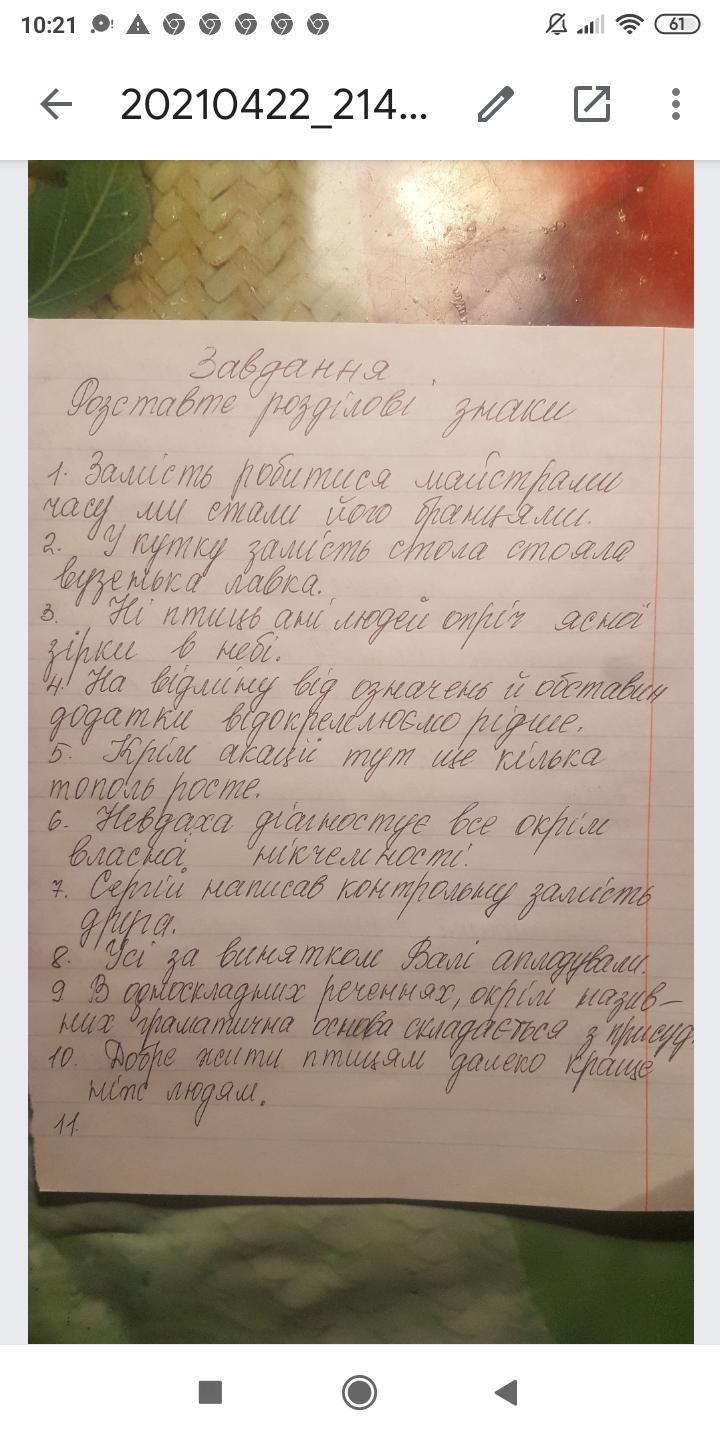 10:21
61
20210422_214...
Завдання
Розставте розділові знаки
1. Замість робитися майстрами
часу ми стали його бранцями.
2. У кутку замість стола стояла
вузенька лавка.
3. Ні птиць ані людей опріч ясної
зірки в небі.
4. На відміну від означень й обставин
додатки відокремлюємо рідше.
5. Крім акації тут ще кілька
тополь росте.
6. Невдаха діагностує все окрім
власної нікчемності.
7. Сергій написав контрольну замість
друга.
8. Усі за винятком Валі аплодували.
9 В односкладних реченнях, окрім назив-
них граматична основа складається з присуд
10. Добре жити птицям далеко краще
ніж людям.
11.